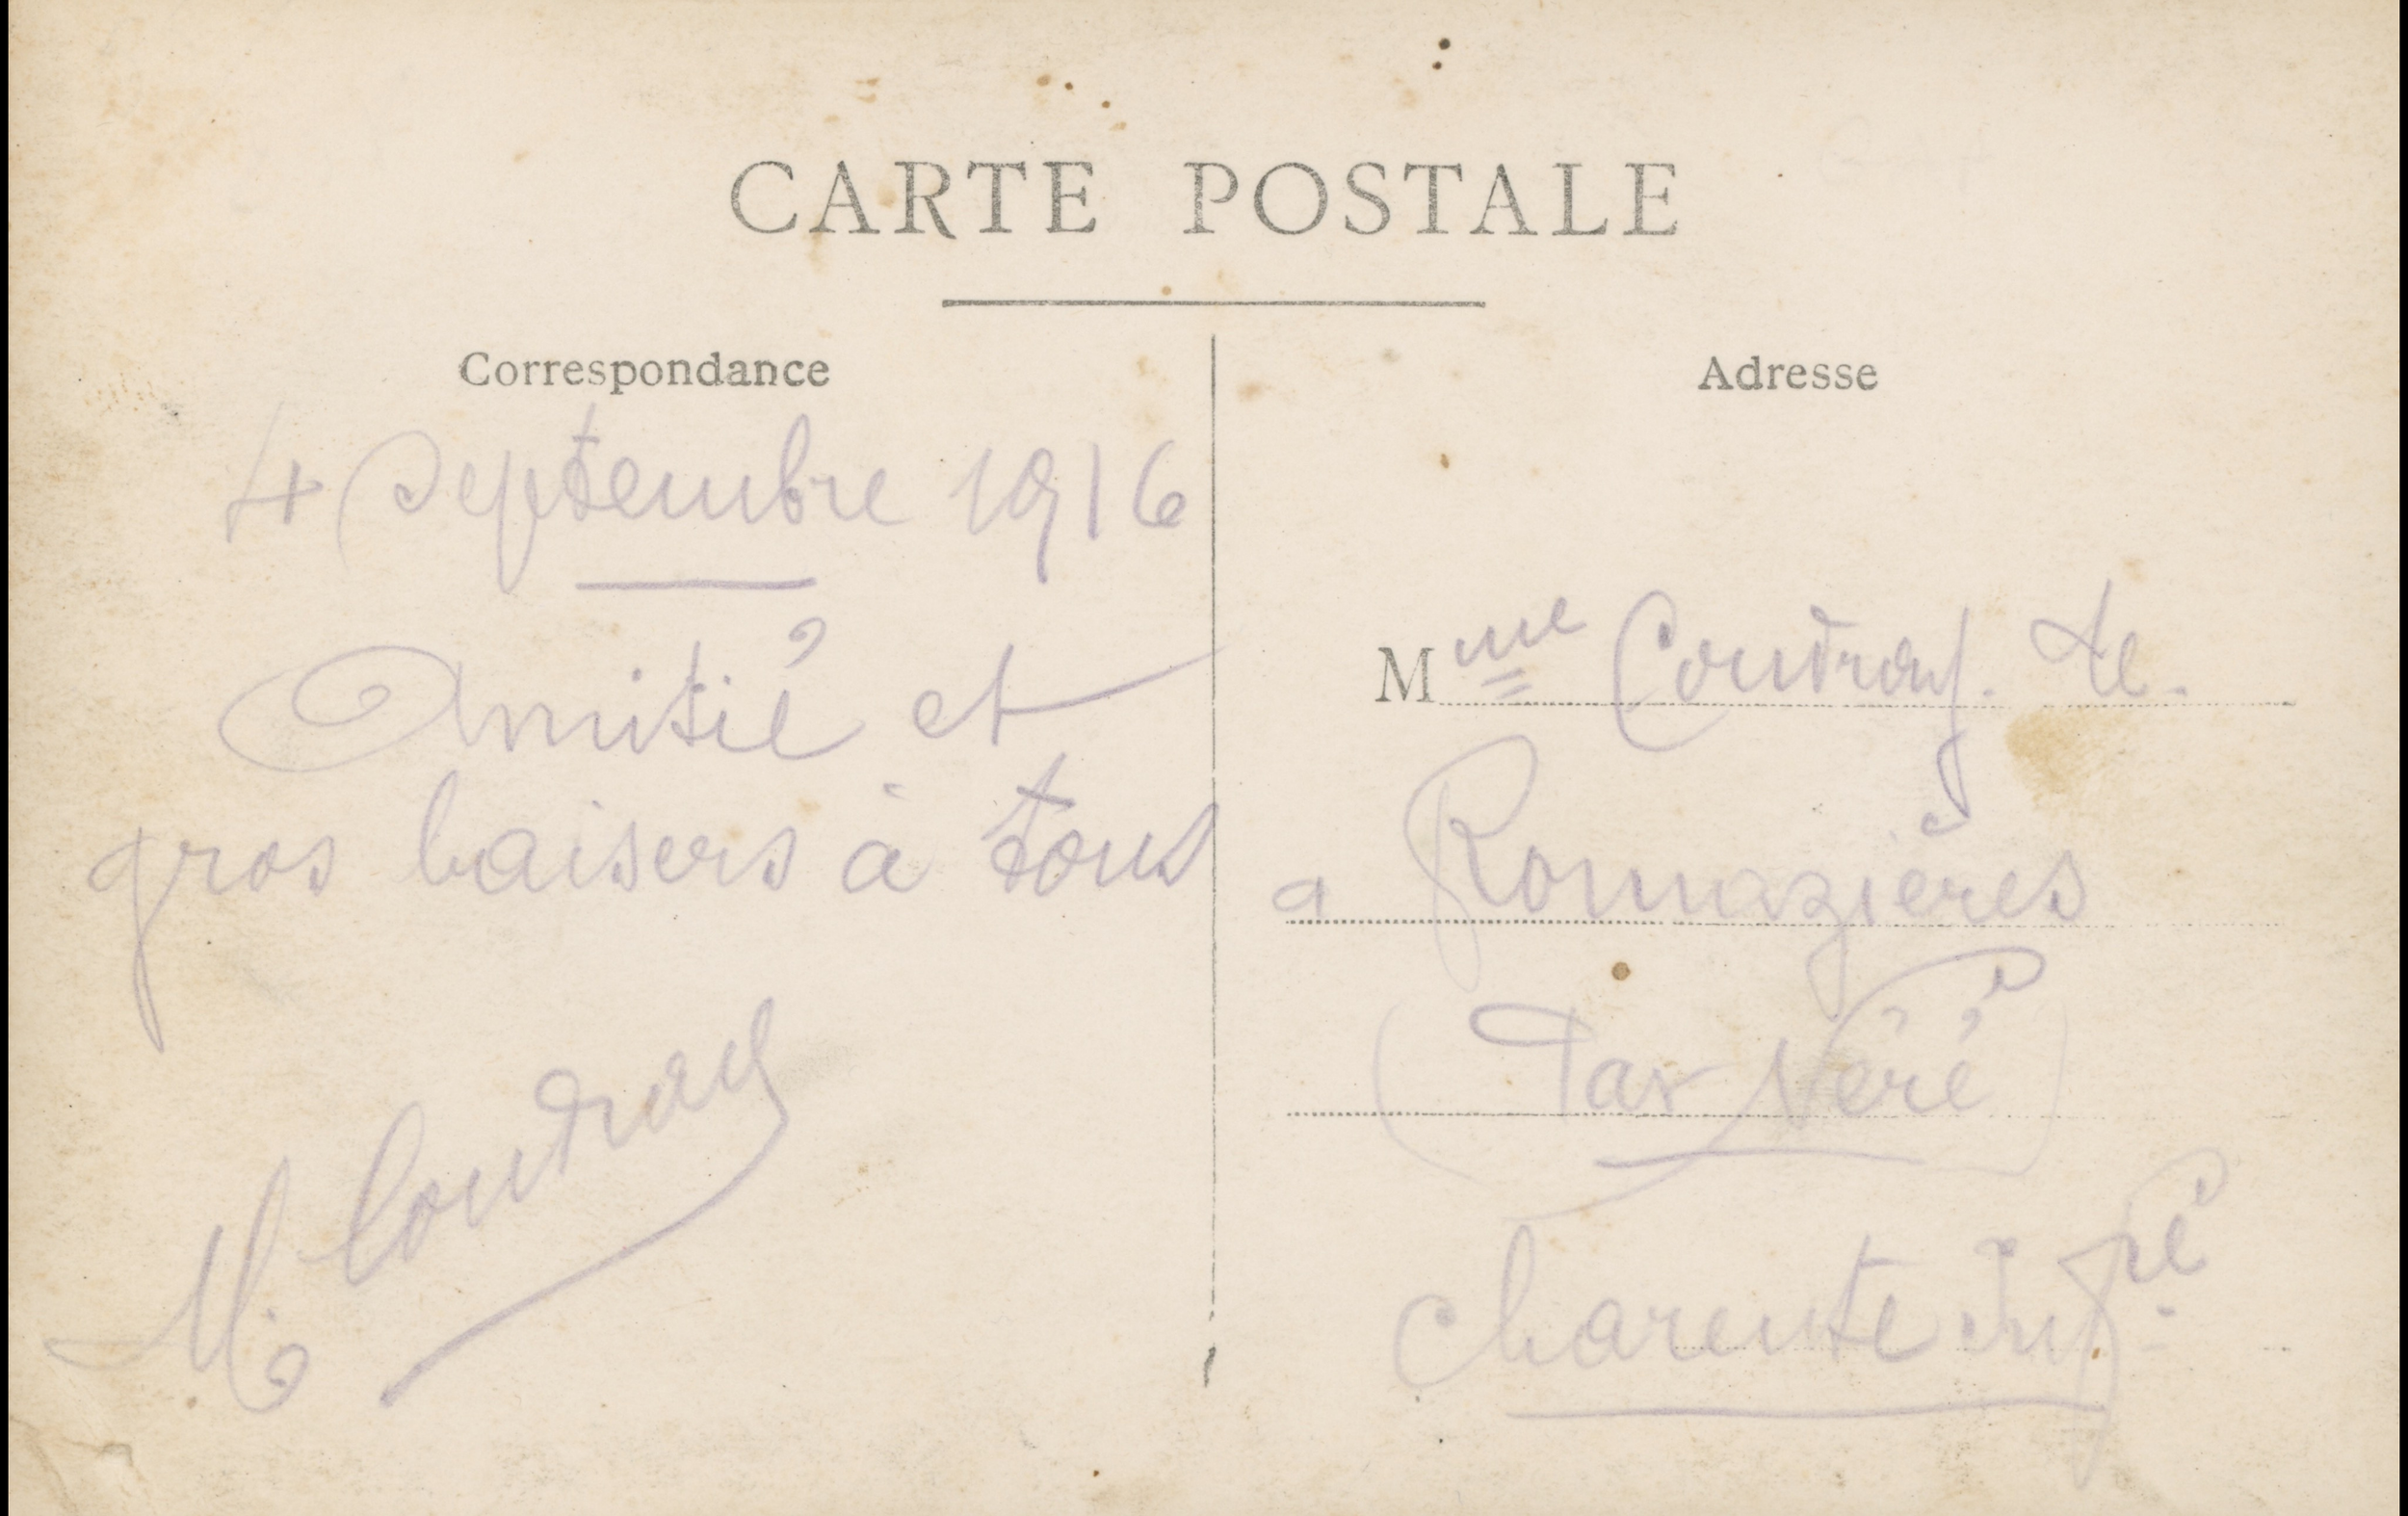 CARTE POSTALE
Correspondance
4 Septembre 1916
Amitié et
gros baisers à tous
M. Coudray
Adresse
Mme Coudray.
a Romazières
(Par Néré)
Charente Infre